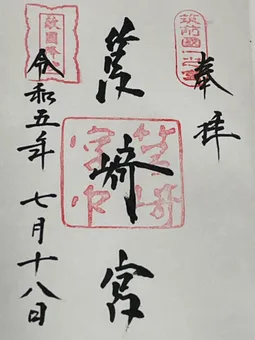 奉拝
筑前國一之宮
筥崎宮
筥崎
宮印
敵國降伏
令和五年七月十八日